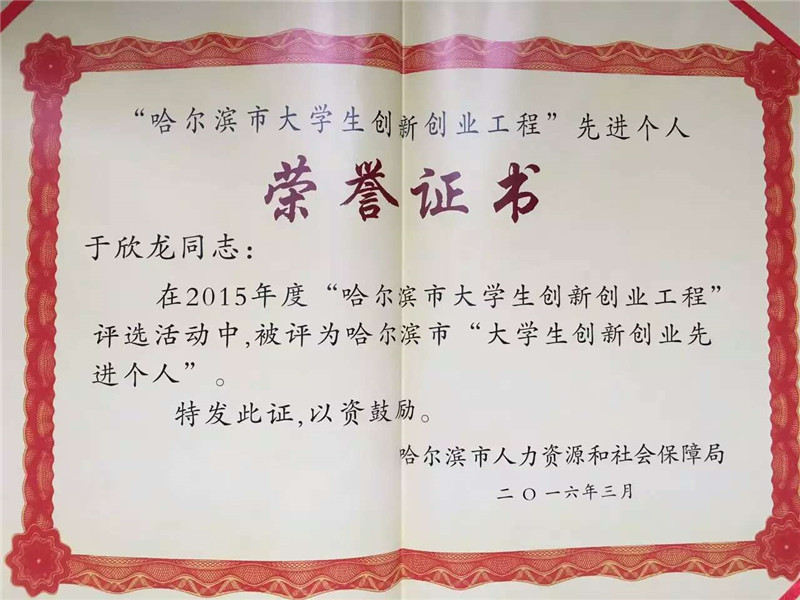 “哈尔滨市大学生创新创业工程”先进个人
荣誉证书
于欣龙同志：
在2015年度“哈尔滨市大学生创新创业工程”
评选活动中,被评为哈尔滨市“大学生创新创业先
进个人”。
特发此证,以资鼓励。
哈尔滨市人力资源和社会保障局
二〇一六年三月